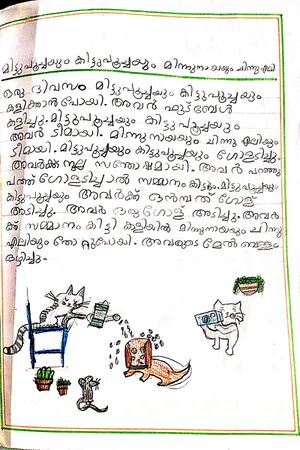 മിട്ടുപൂച്ചയും കിട്ടുപൂച്ചയും മിന്നുനായയും ചിന്നു എലി
ഒരു ദിവസം മിട്ടുപൂച്ചയും കിട്ടുപൂച്ചയും
കളിക്കാൻ പോയി. അവർ ഫുട്ബോൾ
കളിച്ചു. മിട്ടുപൂച്ചയും കിട്ടു പൂച്ചയും
അവർ ടീമായി. മിന്നു നായയും ചിന്നു എലിയും
ടീമായി. മിട്ടുപൂച്ചയും കിട്ടുപൂച്ചയും ഗോളടിച്ചു.
അവർക്ക് നല്ല സന്തോഷമായി. അവർ പറഞ്ഞു
പത്ത് ഗോളടിച്ചാൽ സമ്മാനം കിട്ടും. മിട്ടുപൂച്ചയും
കിട്ടുപൂച്ചയും അവർക്ക് ഒൻമ്പത് ഗോള്
അടിച്ചു. അവർ ഒരു ഗോള് അടിച്ചു. അവർ
ക്ക് സമ്മാനം കിട്ടി കളിയിൽ മിന്നുനായയും ചിന്നു
എലിയും തോറ്റുപോയി. അവരുടെ മേൽ
ഒഴിച്ചു.